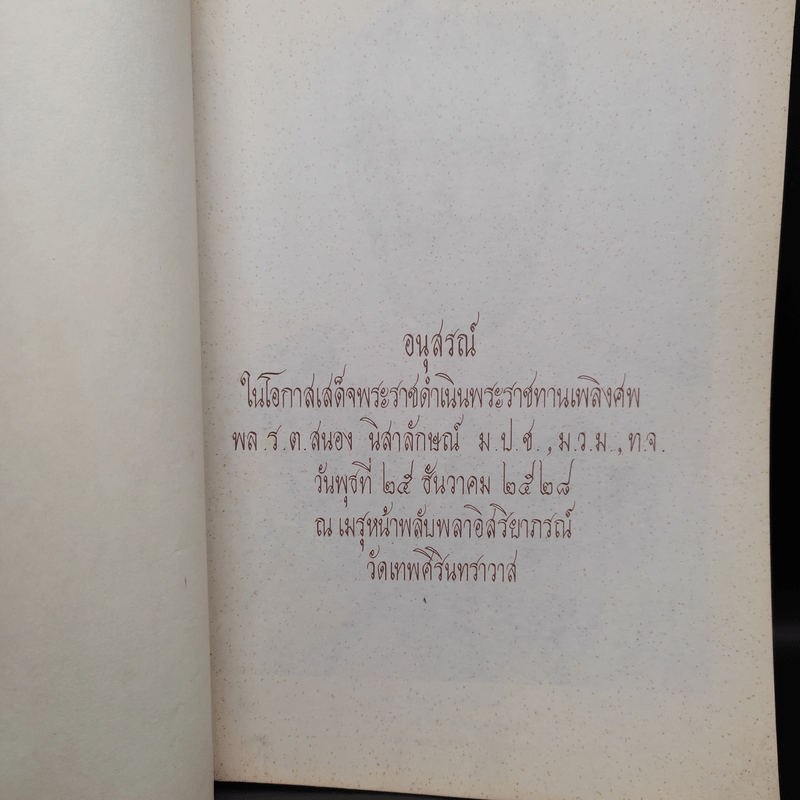 อนุสรณ์
ในโอกาสเสด็จพระราชดำเนินพระราชทานเพลิงศพ
พล.ร.ต.สนอง นิสาลักษณ์ ม.ป.ช.,ม.ว.ม.,ท.จ.
วันพุธที่ ๒๕ ธันวาคม ๒๕๒๘
ณ เมรุหน้าพลับพลาอิสริยาภรณ์
วัดเทพศิรินทราวาส